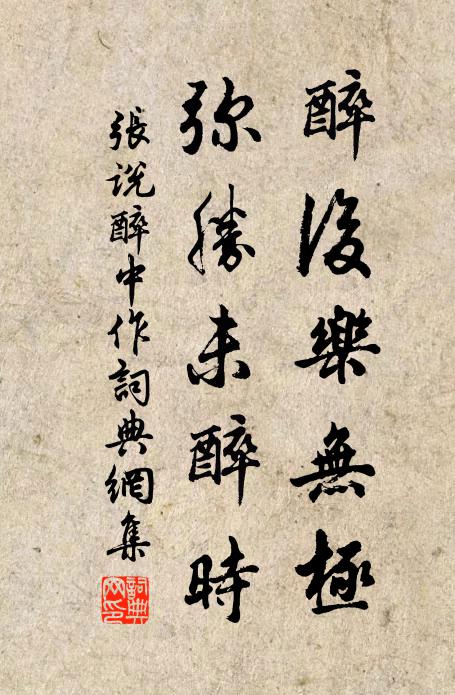 醉後樂無極
彌勝未醉時
張說醉中作詞典網集
詞典
网印